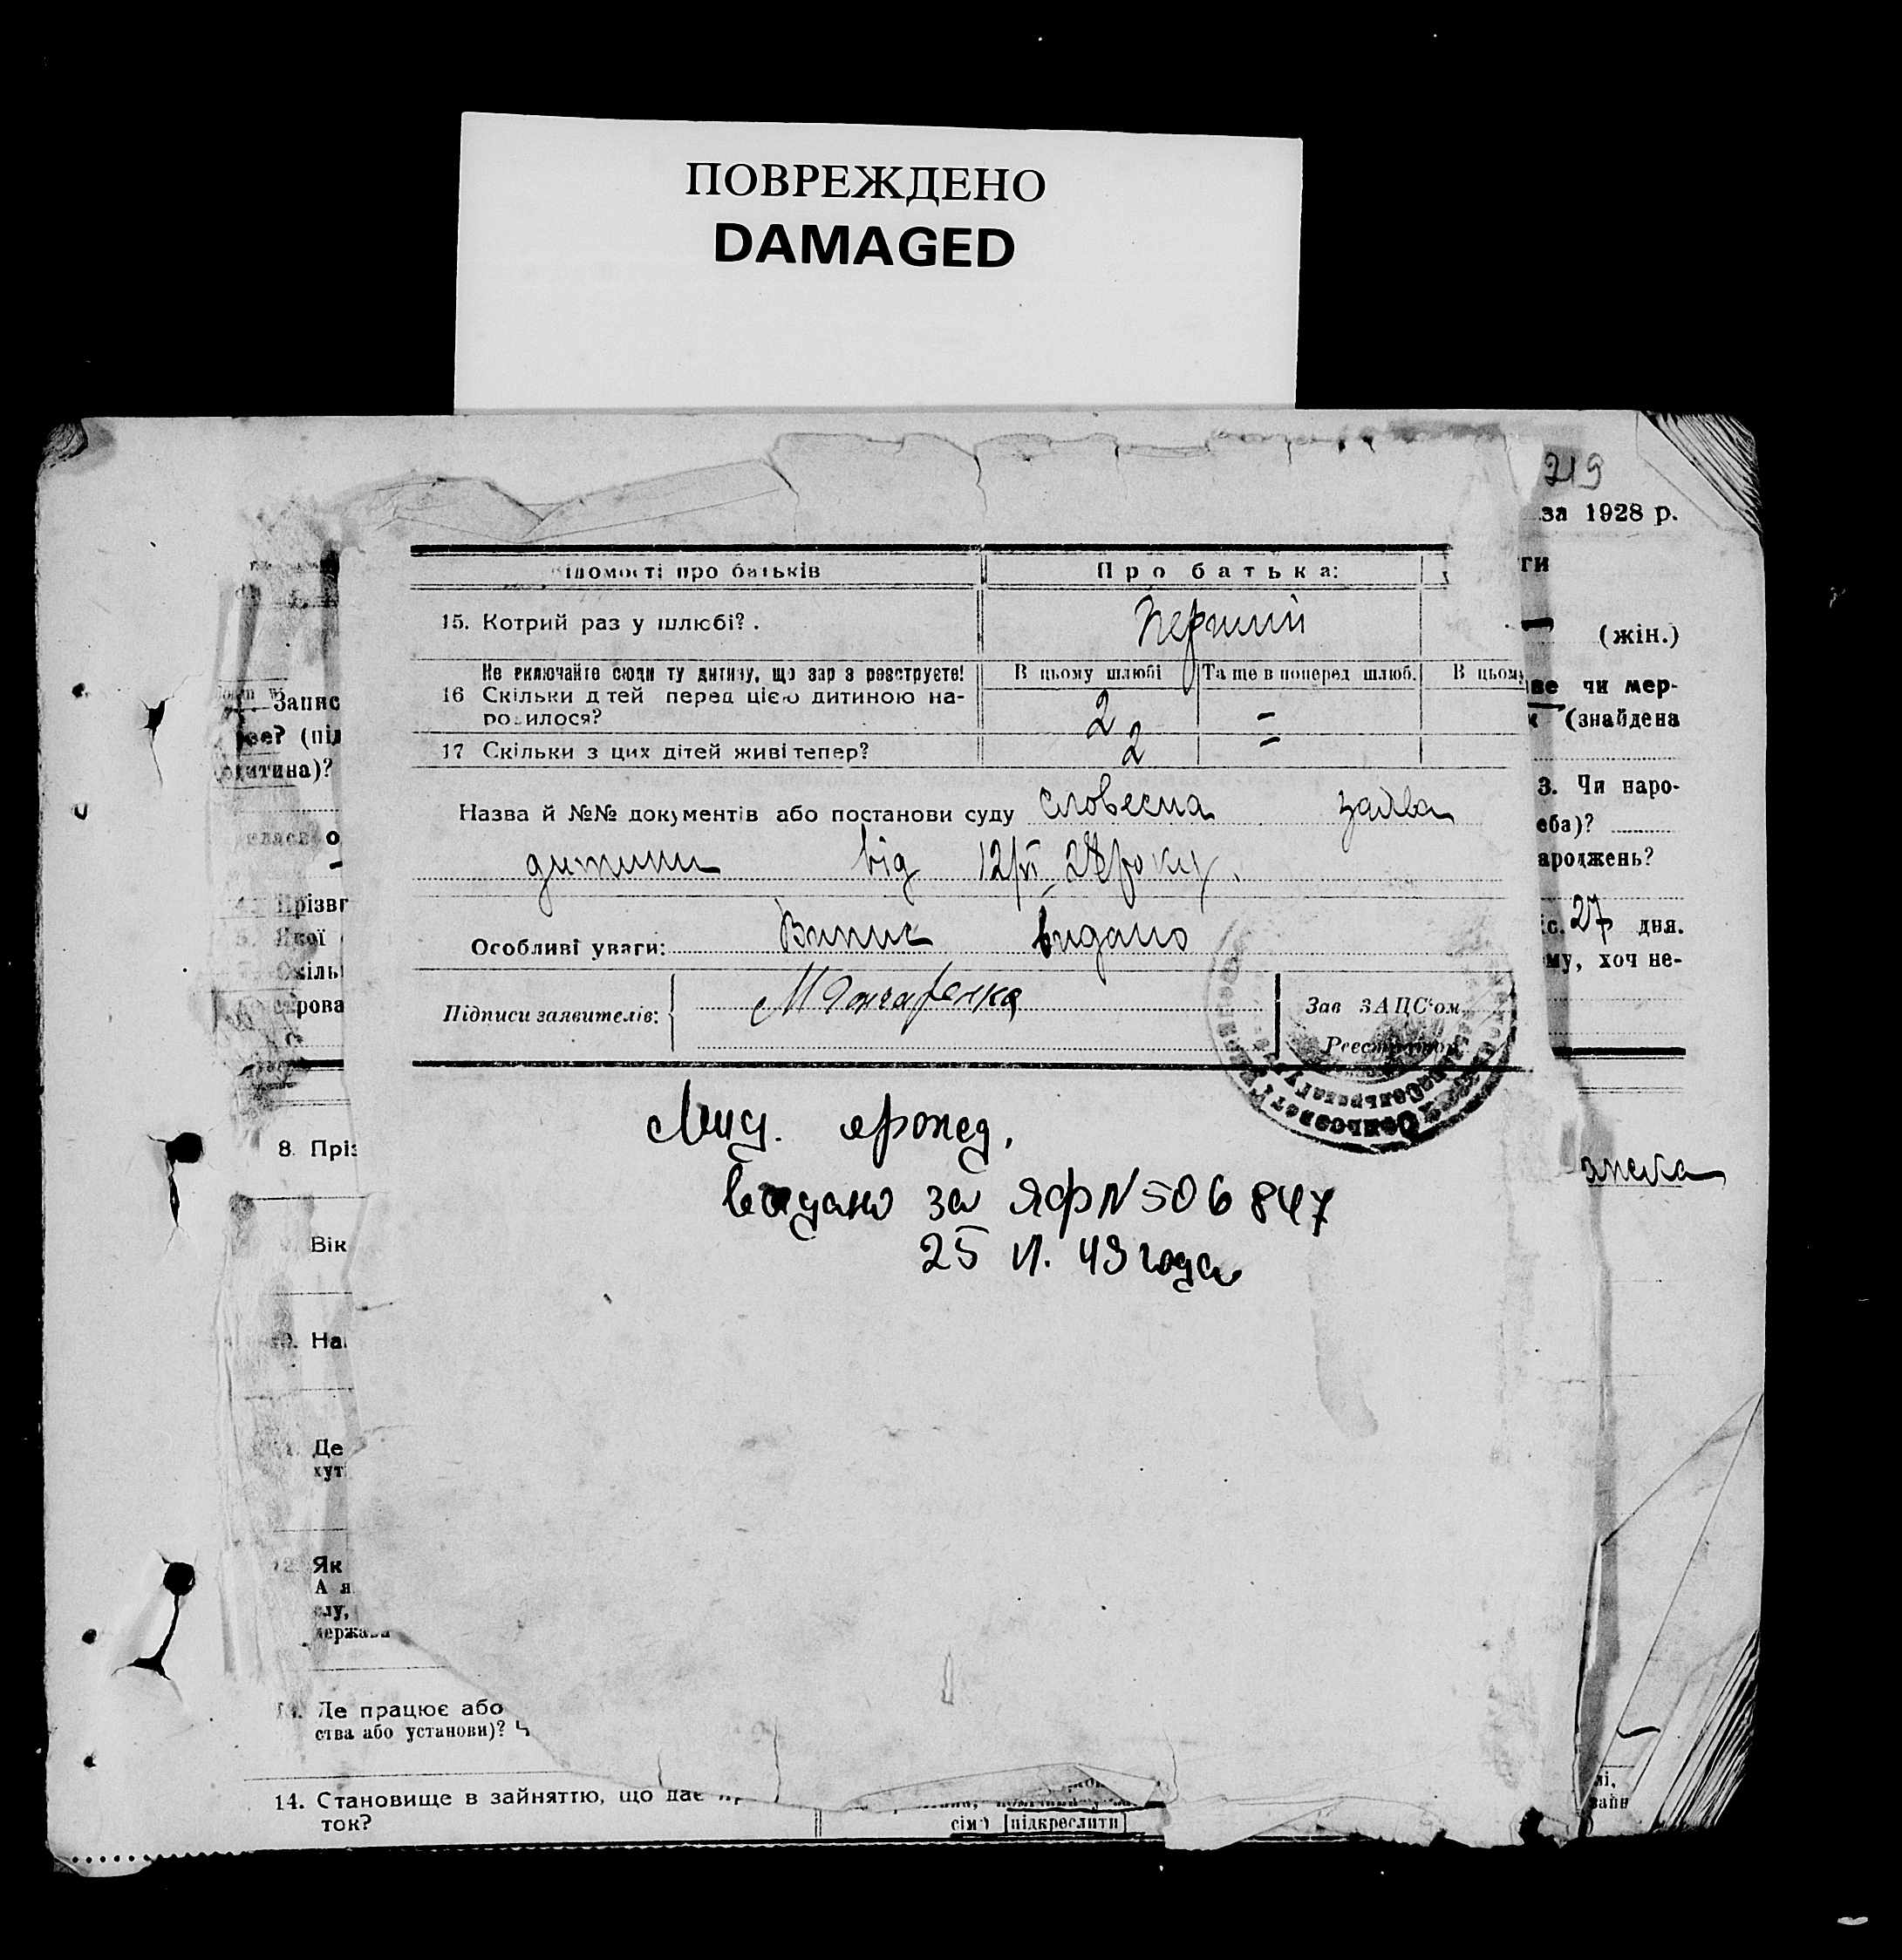 ПОВРЕЖДЕНО
DAMAGED
219
за 1928 р.
ти
ідомості про батьків
Про батька:
15. Котрий раз у шлюбі? .
Перший
(жін.)
Не включайте сюди ту дитину, що зар з реєструєте!
В цьому шлюбі
Та ще в поперед шлюб.
В цьому
ве чи мер-
16 Скільки д тей перед цією дитиною на-
ро илося?
2
=
(знайдена
17 Скільки з цих дітей живі тепер?
2
=
Запис
ве? (під
дитина)?
3. Чи наро-
Назва й №№ документів або постанови суду словесна заява
еба)?
дитини від 12/VI 28 року.
ароджень?
Прізв
Якої
Особливі уваги: Випис видано
іс. 27 дня.
му, хоч не-
Скіль
рова
Підписи заявителів:
М Гончаренко
Зав ЗАЦС'ом
Реєстратор
видано за ЯФ N 506847
25 VI. 43 года
8. Пріз
Вік
На
Де
хут
Як
А я
слу,
держава
Де працює або
ства або установи)? Ч
14. Становище в зайняттю, що дає пр
ток?
сім ) підкреслити